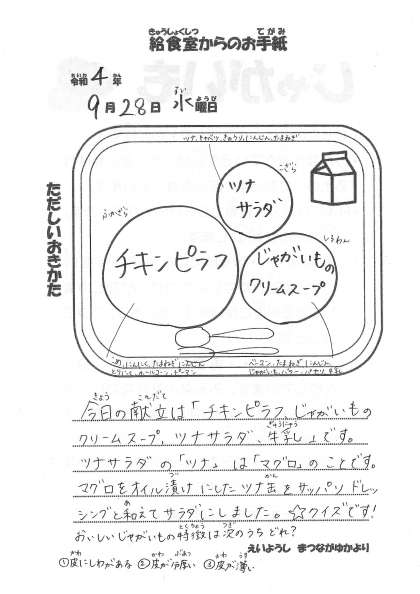 給食室からのお手紙
令和4年
9月28日 水曜日
ただしいおきかた
ツナ、キャベツ、きゅうり、にんじん、たまねぎ
こざら
ツナ
サラダ
ふかざら
チキンピラフ
しるわん
じゃがいもの
クリームスープ
こめ、にんにく、たまねぎ、にんじん
とりにく、ホールコーン、ピーマン
ベーコン、たまねぎ、にんじん
じゃがいも、バター、パセリ、牛乳
今日の献立は「チキンピラフ、じゃがいもの
クリームスープ、ツナサラダ、牛乳」です。
ツナサラダの「ツナ」は「マグロ」のことです。
マグロをオイル漬けにしたツナ缶をサッパリドレッ
シングと和えてサラダにしました。☆クイズです!
おいしいじゃがいもの特徴は次のうちどれ?
えいようし まつながゆかより
①皮にしわがある ②皮が分厚い ③皮が薄い